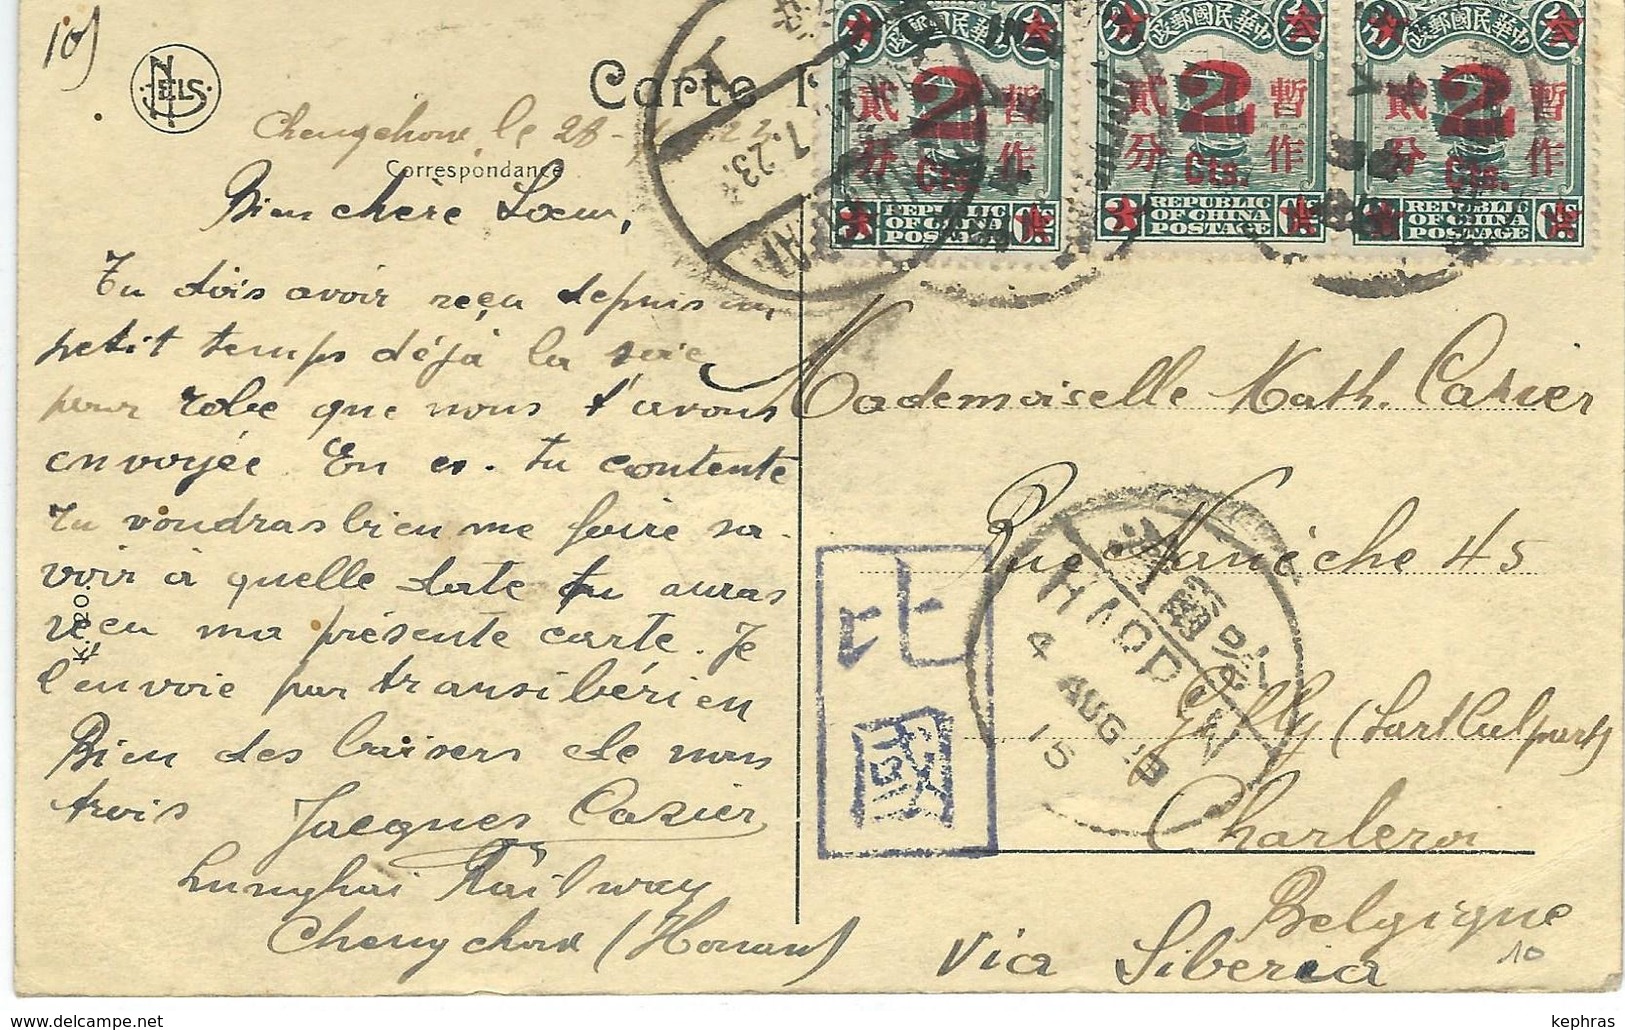 105
NELS
Carte
Chengchow, le 28
Correspondance
Bien chère Sœur,
Tu dois avoir reçu depuis un
petit temps déjà la soie
pour robe que nous t'avons
envoyée. En es-tu contente
Tu voudras bien me faire sa-
voir à quelle date tu auras
reçu ma présente carte. Je
l'envoie par transibérien
Bien des baisers de nous
trois Jacques Cazier
Lunghai Railway
Chengchow (Honan)
中華民國郵政
暫作
貳分
2
Cts.
REPUBLIC
OF CHINA
POSTAGE
中華民國郵政
暫作
貳分
2
Cts.
REPUBLIC
OF CHINA
POSTAGE
中華民國郵政
暫作
貳分
2
Cts.
REPUBLIC
OF CHINA
POSTAGE
7.23.
Mademoiselle Math. Cazier
Rue Nanèche 45
Gilly (Sart Culpart)
Charleroi
Belgique
Via Siberia
10
比國
4 AUG
15
delcampe.net
kephras